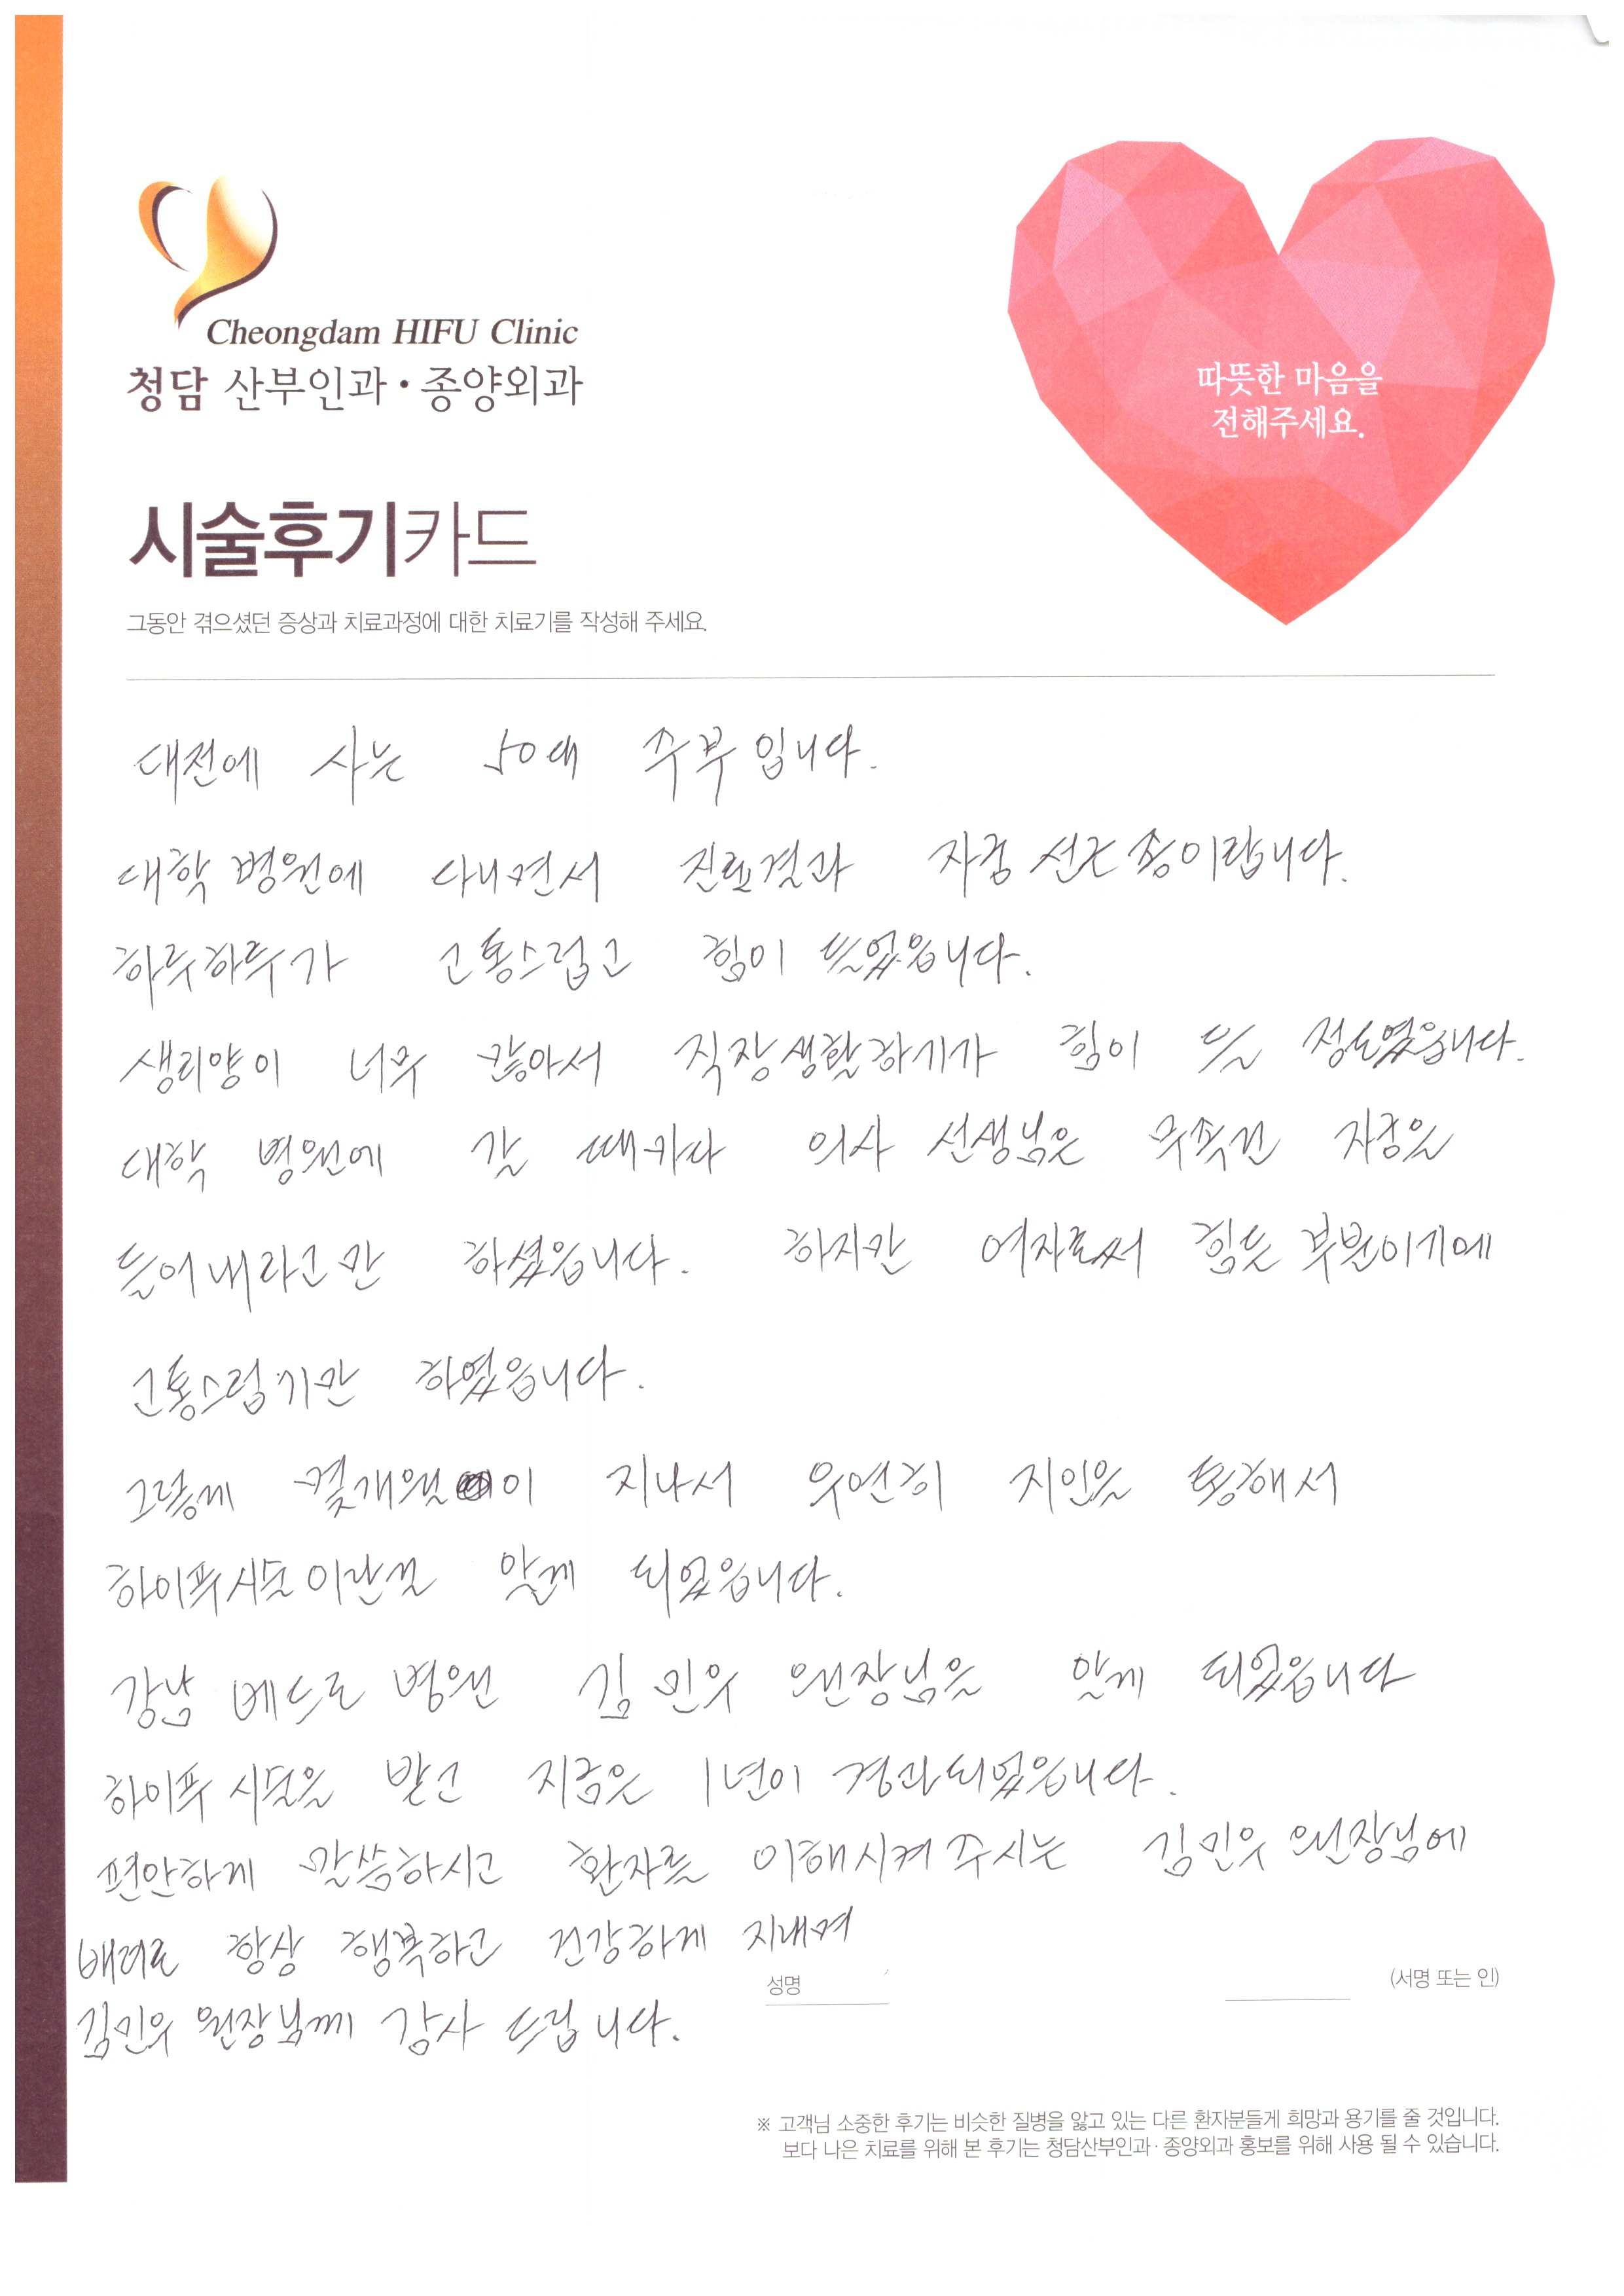 Cheongdam HIFU Clinic
청담 산부인과·종양외과
따뜻한 마음을
전해주세요.
시술후기카드
그동안 겪으셨던 증상과 치료과정에 대한 치료기를 작성해 주세요.
대전에 사는 50대 주부입니다.
대학병원에 다니면서 진료결과 자궁선근종이랍니다.
하루하루가 고통스럽고 힘이 들었읍니다.
생리양이 너무 많아서 직장생활하기가 힘이 들 정도였읍니다.
대학 병원에 갈 때마다 의사 선생님은 무족건 자궁을
들어내라고만 하셨읍니다. 하지만 여자로써 힘든 부분이기에
고통스럽기만 하였읍니다.
그렇게 몇개월이 지나서 우연히 지인을 통해서
하이푸시술이란걸 알게 되었읍니다.
강남 베드로 병원 김민우 원장님을 알게 되었읍니다
하이푸 시술을 받고 지금은 1년이 경과되었읍니다.
편안하게 말씀하시고 환자를 이해시켜 주시는 김민우 원장님에
배려로 항상 행복하고 건강하게 지내며
성명 (서명 또는 인)
김민우 원장님께 감사 드립니다.
※ 고객님 소중한 후기는 비슷한 질병을 앓고 있는 다른 환자분들게 희망과 용기를 줄 것입니다.
보다 나은 치료를 위해 본 후기는 청담산부인과·종양외과 홍보를 위해 사용 될 수 있습니다.